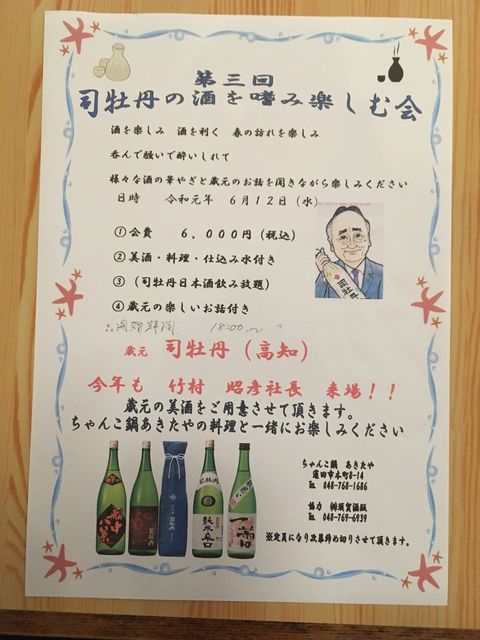 第三回
司牡丹の酒を嗜み楽しむ会
酒を楽しみ 酒を利く 春の訪れを楽しみ
呑んで騒いで酔いしれて
様々な酒の華やぎと蔵元のお話を聞きながら楽しみください
日時 令和元年 6月12日(水)
①会費 6,000円(税込)
②美酒・料理・仕込み水付き
③(司牡丹日本酒飲み放題)
④蔵元の楽しいお話付き
18:00～
蔵元 司牡丹(高知)
今年も 竹村 昭彦社長 来場!!
蔵元の美酒をご用意させて頂きます。
ちゃんこ鍋あきたやの料理と一緒にお楽しみください
ちゃんこ鍋 あきたや
蓮田市本町8-14
℡ 048-768-1686
協力 ㈲須賀酒販
℡ 048-769-6939
※定員になり次第締め切りさせて頂きます。
司牡丹
船中八策
司牡丹
純米辛口